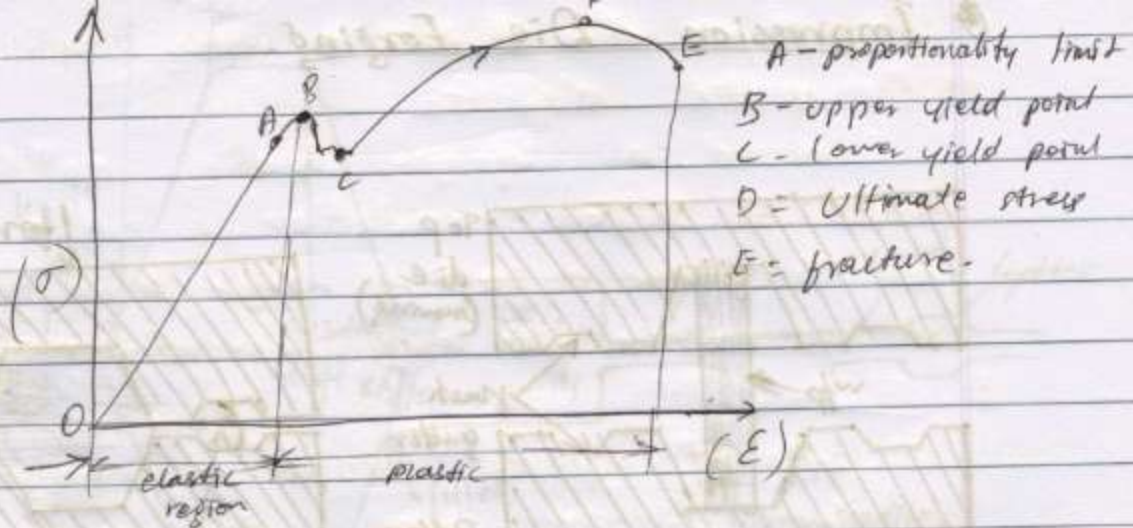 A - proportionality limit
B - upper yield point
C - lower yield point
D = Ultimate stress
E = fracture.
B
A
C
E
(σ)
O
(ε)
elastic
region
plastic
Die Forging
Top
die